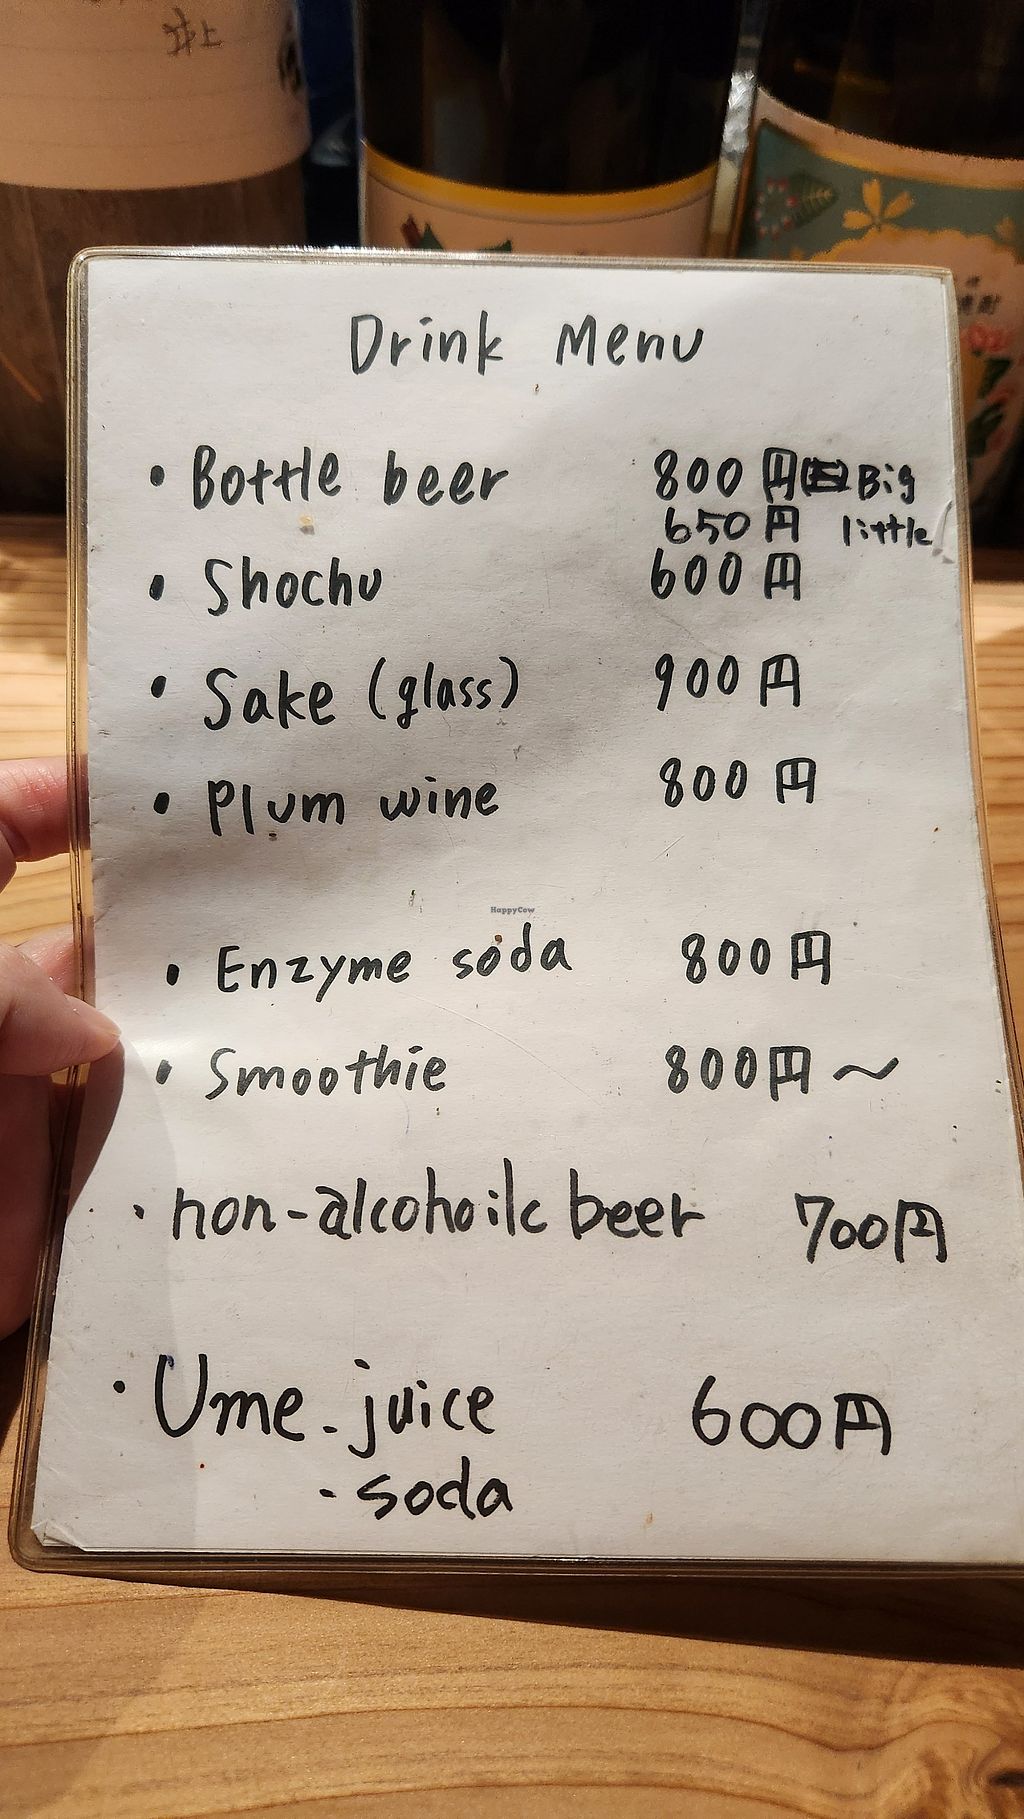 Drink Menu
• Bottle beer 800円 Big
650円 little
• Shochu 600円
• Sake (glass) 900円
• Plum wine 800円
HappyCow
• Enzyme soda 800円
• Smoothie 800円〜
・non-alcohoilc beer 700円
・Ume-juice 600円
-soda